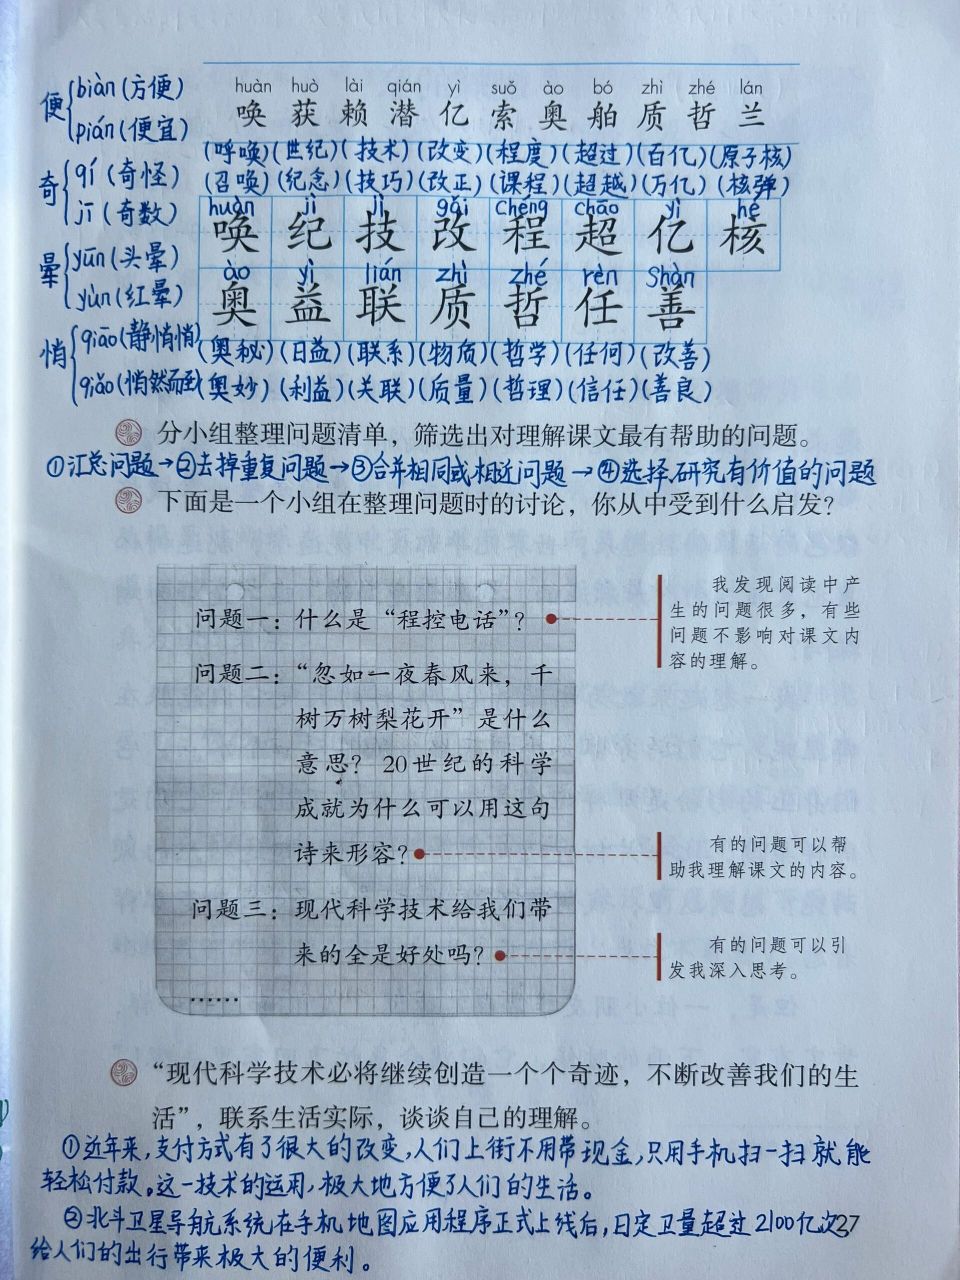 便 biàn(方便)
pián(便宜)
奇 qí(奇怪)
jī(奇数)
晕 yūn(头晕)
yùn(红晕)
悄 qiāo(静悄悄)
qiǎo(悄然而至)
huàn huò lài qián yì suǒ ào bó zhì zhé lán
唤 获 赖 潜 亿 索 奥 舶 质 哲 兰
(呼唤)(世纪)(技术)(改变)(程度)(超过)(百亿)(原子核)
(召唤)(纪念)(技巧)(改正)(课程)(超越)(万亿)(核弹)
huàn jì jì gǎi chéng chāo yì hé
唤 纪 技 改 程 超 亿 核
ào yì lián zhì zhé rèn Shàn
奥 益 联 质 哲 任 善
(奥秘)(日益)(联系)(物质)(哲学)(任何)(改善)
(奥妙)(利益)(关联)(质量)(哲理)(信任)(善良)
分小组整理问题清单，筛选出对理解课文最有帮助的问题。
①汇总问题→②去掉重复问题→③合并相同或相近问题→④选择研究有价值的问题
下面是一个小组在整理问题时的讨论，你从中受到什么启发？
问题一：什么是“程控电话”？
我发现阅读中产
生的问题很多，有些
问题不影响对课文内
容的理解。
问题二：“忽如一夜春风来，千
树万树梨花开”是什么
意思？20世纪的科学
成就为什么可以用这句
诗来形容？
有的问题可以帮
助我理解课文的内容。
问题三：现代科学技术给我们带
来的全是好处吗？
有的问题可以引
发我深入思考。
……
“现代科学技术必将继续创造一个个奇迹，不断改善我们的生
活”，联系生活实际，谈谈自己的理解。
①近年来,支付方式有了很大的改变,人们上街不用带现金,只用手机扫一扫就能
轻松付款。这一技术的运用,极大地方便了人们的生活。
②北斗卫星导航系统在手机地图应用程序正式上线后,日定卫量超过2100亿次,
27
给人们的出行带来极大的便利。